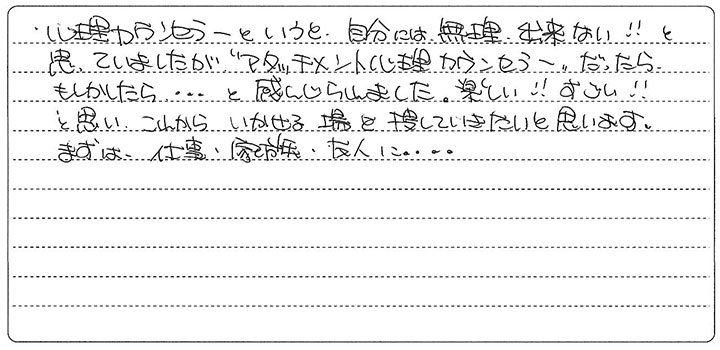 ・心理カウンセラーというと、自分には無理、出来ない!!と
思っていましたが"アタッチメント心理カウンセラー"だったら、
もしかしたら・・・と感じられました。楽しい!!すごい!!
と思い、これから いかせる場を捜していきたいと思います。
まずは、仕事・家族・友人に・・・・